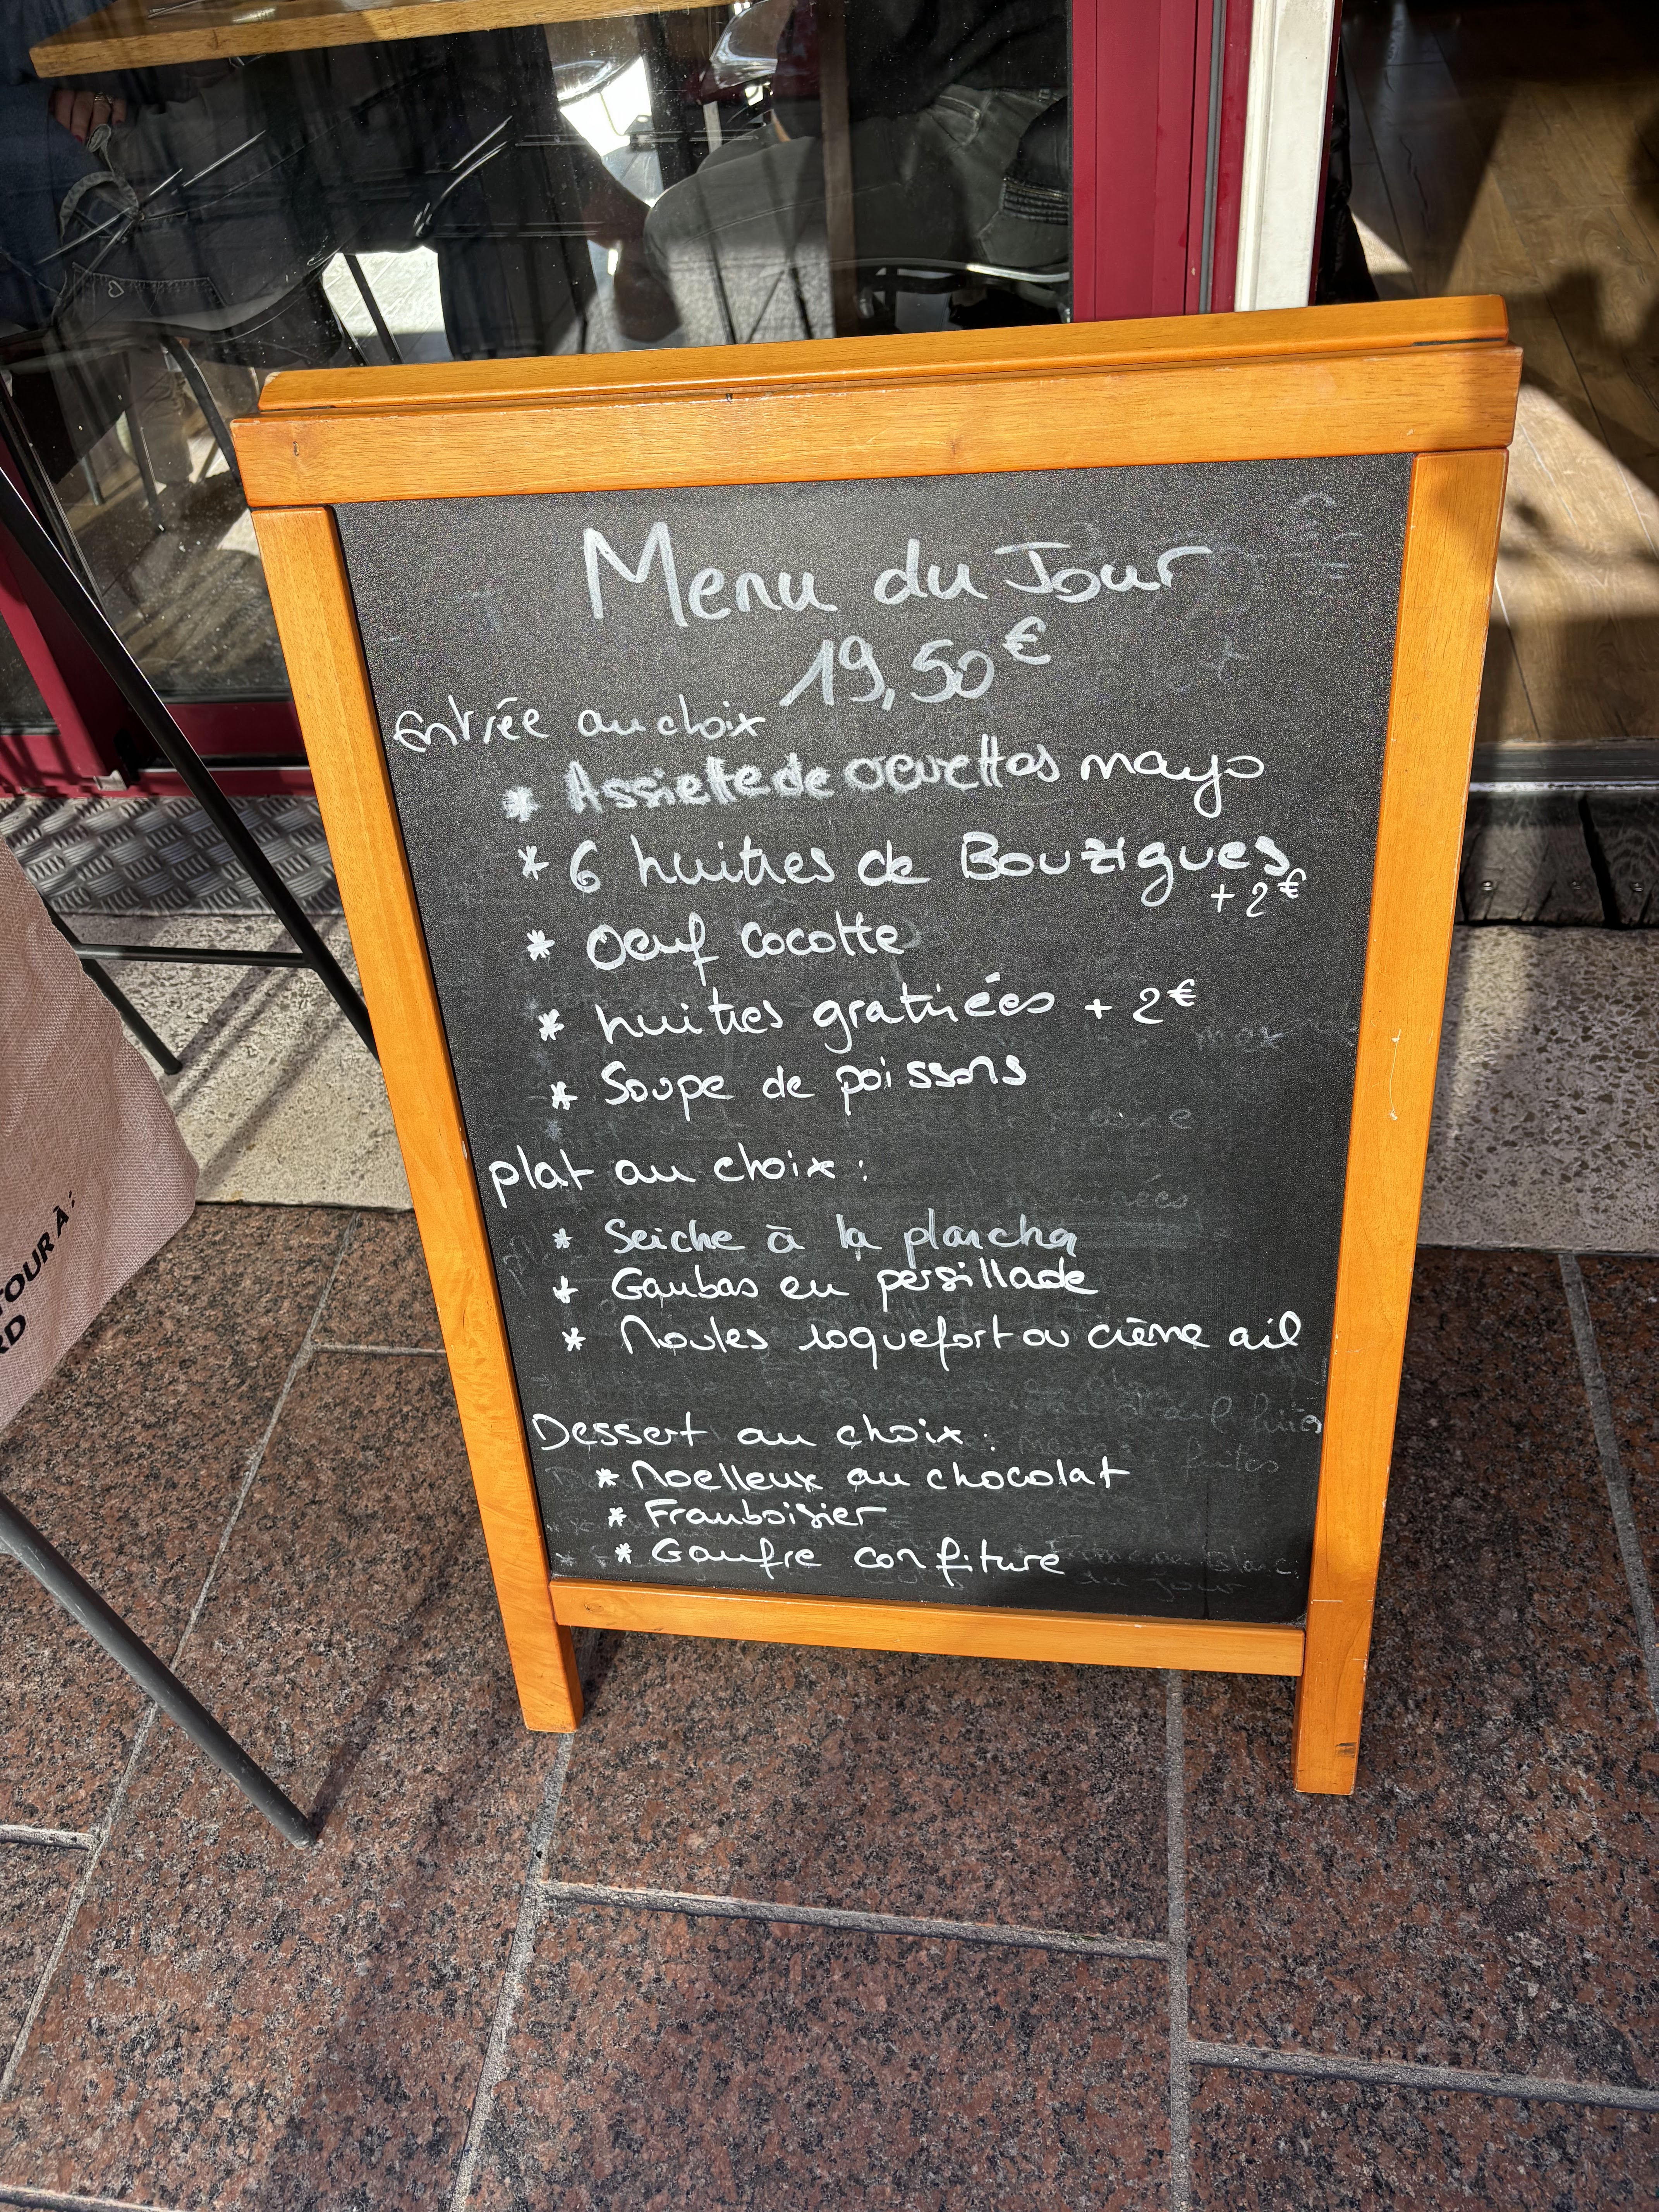 Menu du Jour
19,50€
Entrée au choix
* Assiette de crevettes mayo
* 6 huitres de Bouzigues
+ 2€
* Oeuf Cocotte
* huitres gratinées + 2€
* Soupe de poissons
plat au choix :
* Seiche à la plancha
* Gambas en persillade
* Moules roquefort ou crème ail
Dessert au choix :
* Moelleux au chocolat
* Framboisier
* Gaufre confiture
TOUR À :
RD